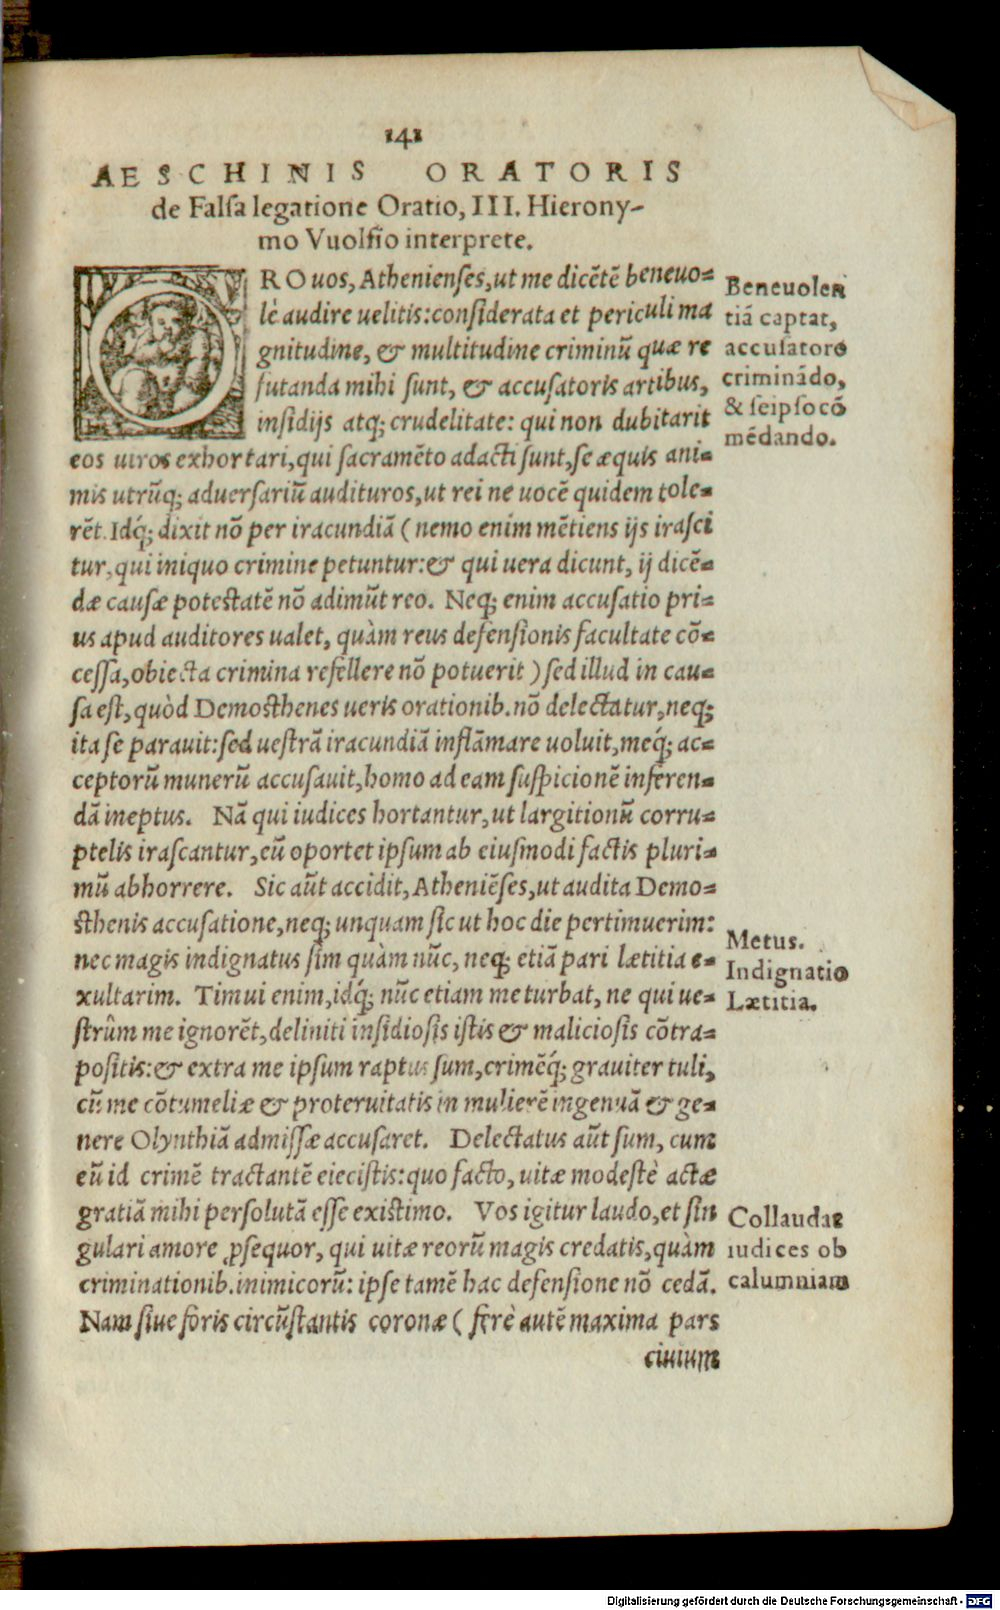 141
AESCHINIS ORATORIS
de Falsa legatione Oratio, III. Hierony-
mo Vuolfio interprete.
ORO uos, Athenienses, ut me dicẽtẽ beneuo-
lè audire uelitis: considerata et periculi ma
gnitudine, & multitudine criminũ quæ re
futanda mihi sunt, & accusatoris artibus,
insidijs atq; crudelitate: qui non dubitarit
eos uiros exhortari, qui sacramẽto adacti sunt, se æquis ani-
mis utrũq; aduersariũ audituros, ut rei ne uocẽ quidem tole-
rẽt. Idq́; dixit nõ per iracundiã (nemo enim mẽtiens ijs irasci
tur, qui iniquo crimine petuntur: & qui uera dicunt, ij dicẽ-
dæ causæ potestatẽ nõ adimũt reo. Neq; enim accusatio pri-
us apud auditores ualet, quàm reus defensionis facultate cõ-
cessa, obiecta crimina refellere nõ potuerit) sed illud in cau-
sa est, quòd Demosthenes ueris orationib. nõ delectatur, neq;
ita se parauit: sed uestrã iracundiã inflãmare uoluit, meq́; ac-
ceptorũ munerũ accusauit, homo ad eam suspicionẽ inferen-
dã ineptus. Nã qui iudices hortantur, ut largitionũ corru-
ptelis irascantur, eũ oportet ipsum ab eiusmodi factis pluri-
mũ abhorrere. Sic aũt accidit, Atheniẽses, ut audita Demo-
sthenis accusatione, neq; unquam sic ut hoc die pertimuerim:
nec magis indignatus sim quàm nũc, neq; etiã pari lætitia e-
xultarim. Timui enim, idq́; nũc etiam me turbat, ne qui ue-
strûm me ignorẽt, deliniti insidiosis istis & maliciosis cõtra-
positis: & extra me ipsum raptus sum, crimẽq́; grauiter tuli,
cũ me cõtumeliæ & proteruitatis in mulierẽ ingenuã & ge-
nere Olynthiã admissæ accusaret. Delectatus aũt sum, cum
eũ id crimẽ tractantẽ eiecistis: quo facto, uitæ modestè actæ
gratiã mihi persolutã esse existimo. Vos igitur laudo, et sin
gulari amore ꝓsequor, qui uitæ reorũ magis credatis, quàm
criminationib. inimicorũ: ipse tamẽ hac defensione nõ cedã.
Nam siue foris circũstantis coronæ (ferè autẽ maxima pars
ciuium
Beneuolen
tiã captat,
accusatore
criminãdo,
& seipso cõ
mẽdando.
Metus.
Indignatio
Lætitia.
Collaudat
iudices ob
calumniam
Digitalisierung gefördert durch die Deutsche Forschungsgemeinschaft - DFG